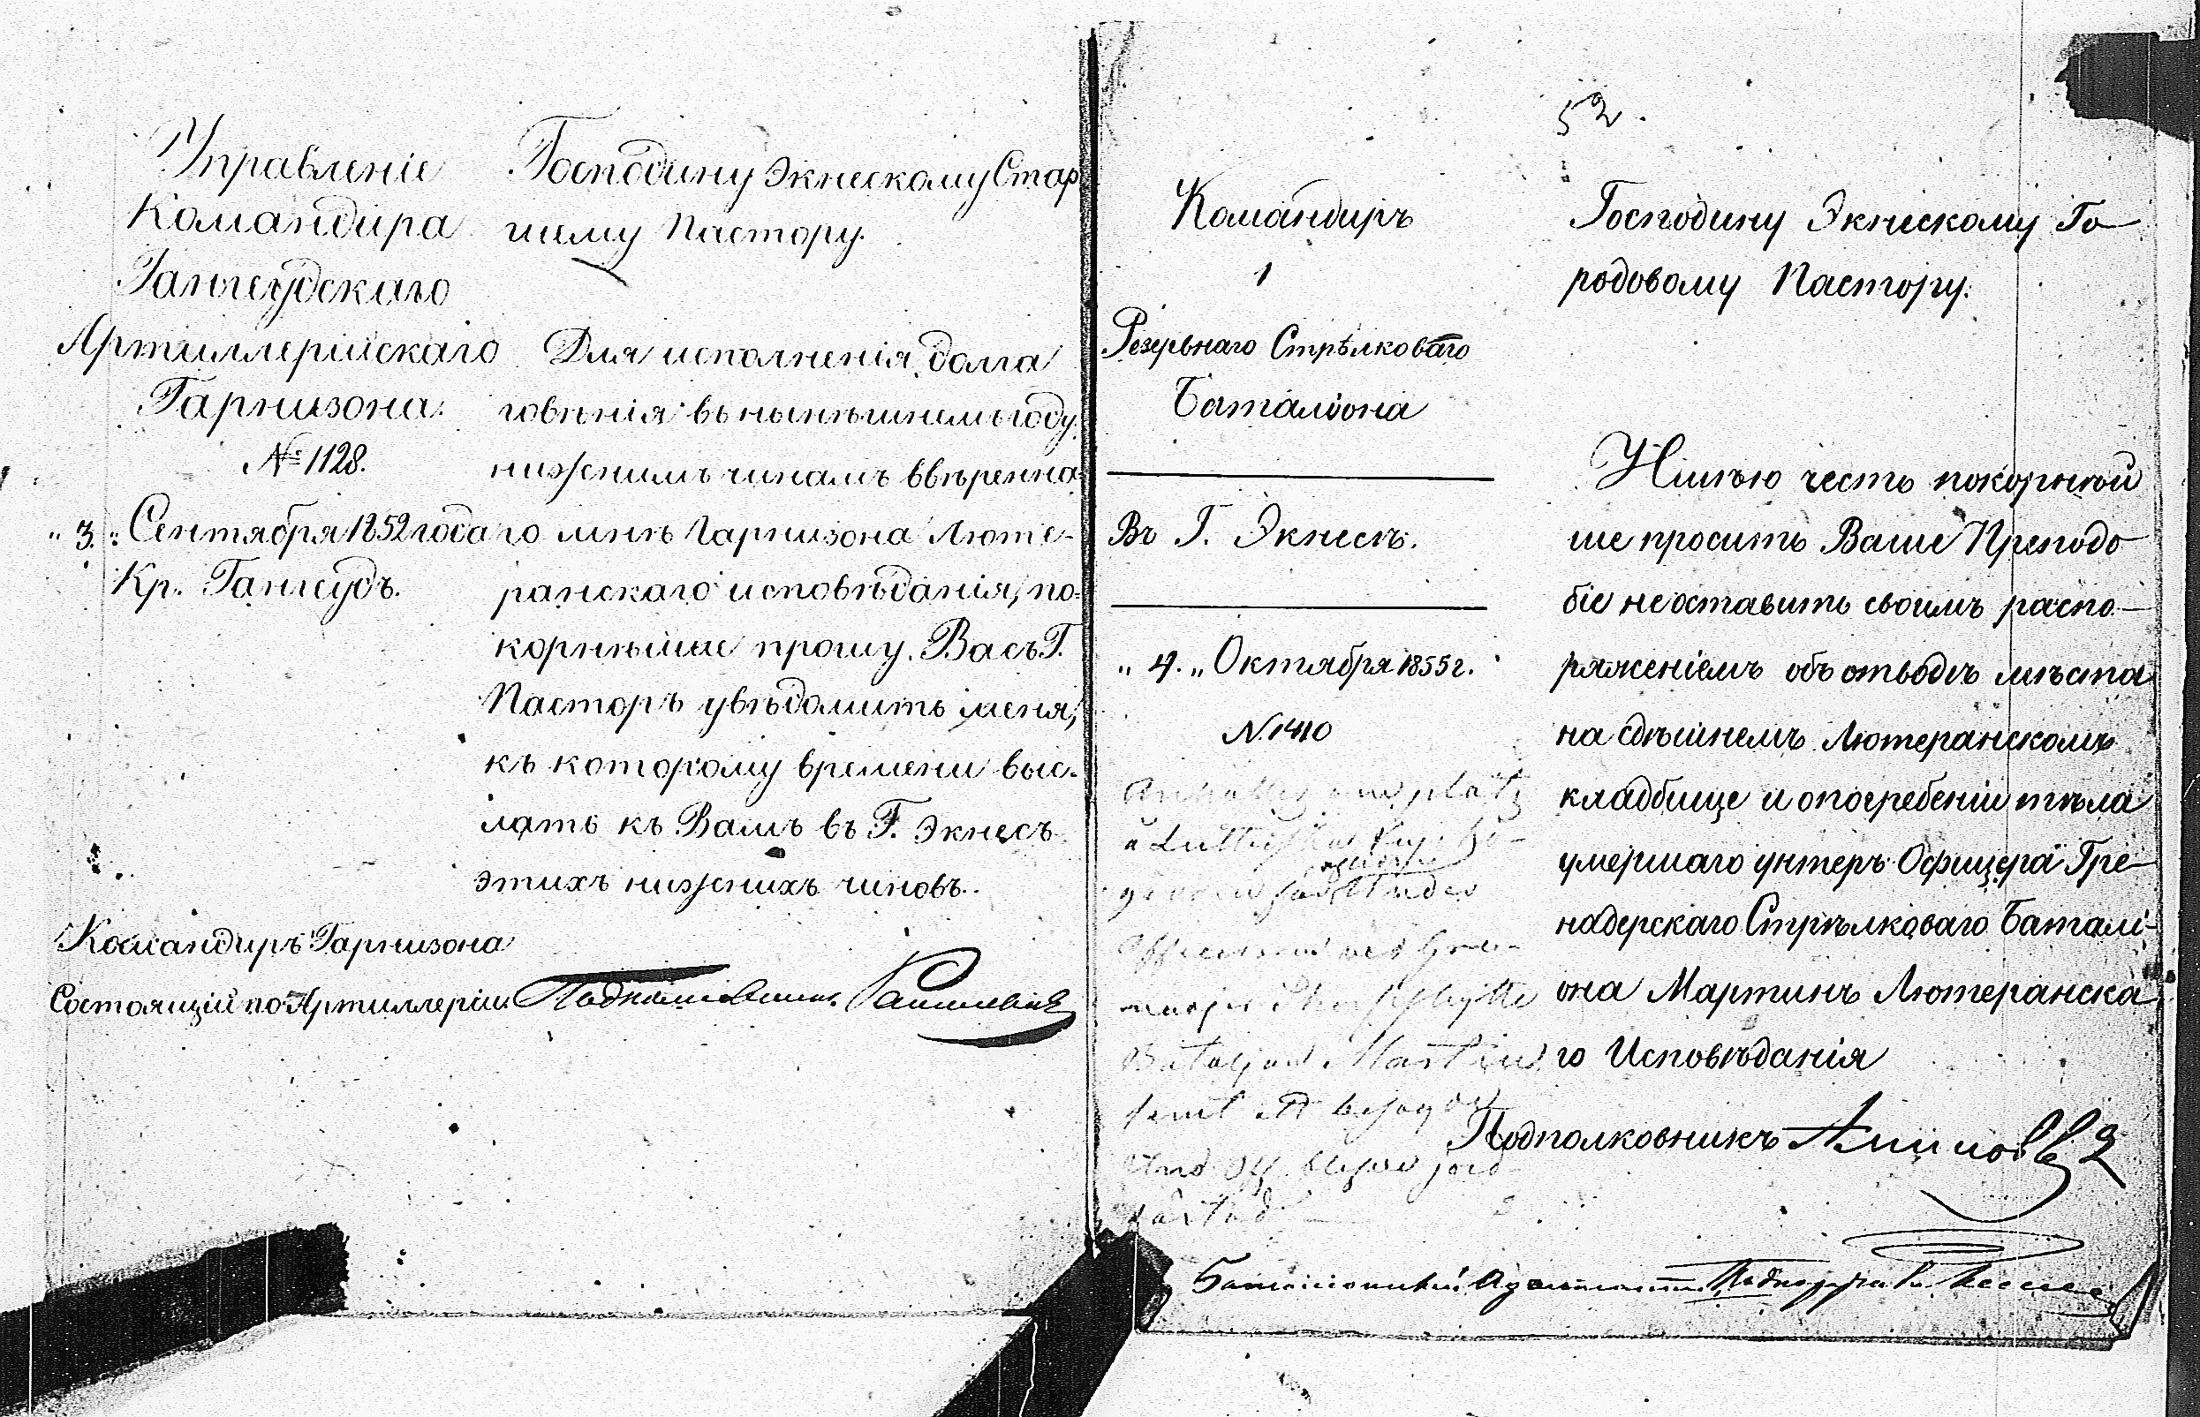 Управленіе
Командира
Гангеудскаго
Артиллерійскаго
Гарнизона.
№ 1128.
"3." Сентября 1852 года
Кр. Гангеудъ.
Господину Экнескому Стар
шему Пастору.
Для исполненія долга
говѣнія въ нынѣшнемъ году
нижнимъ чинамъ ввѣренна-
го мнѣ Гарнизона Люте-
ранскаго исповѣданія, по-
корнѣйше прошу Васъ Г.
Пасторъ увѣдомить меня,
къ которому времени выс-
лать къ Вамъ въ Г. Экнесъ
этихъ нижнихъ чиновъ.
Командиръ Гарнизона
Состоящій по Артиллеріи Подполковникъ
52.
Командиръ
1
Резервнаго Стрѣлковаго
Баталіона
Въ Г. Экнесъ.
"4." Октября 1855 г.
N. 1410
Господину Экнескому Го-
родовому Пастору.
Имѣю честь покорнѣй
ше просить Ваше Преподо
біе не оставить своимъ распо-
ряженіемъ объ отводѣ мѣста
на сдѣшнемъ Лютеранскомъ
кладбище и опогребеніи тѣла
умершаго унтеръ Офицера Гре-
надерскаго Стрѣлковаго Баталі-
она Мартинъ Лютеранска
го Исповѣданія
Подполковникъ
plats
a
Martin
samt att
Und Off
Баталіонный Адъютантъ